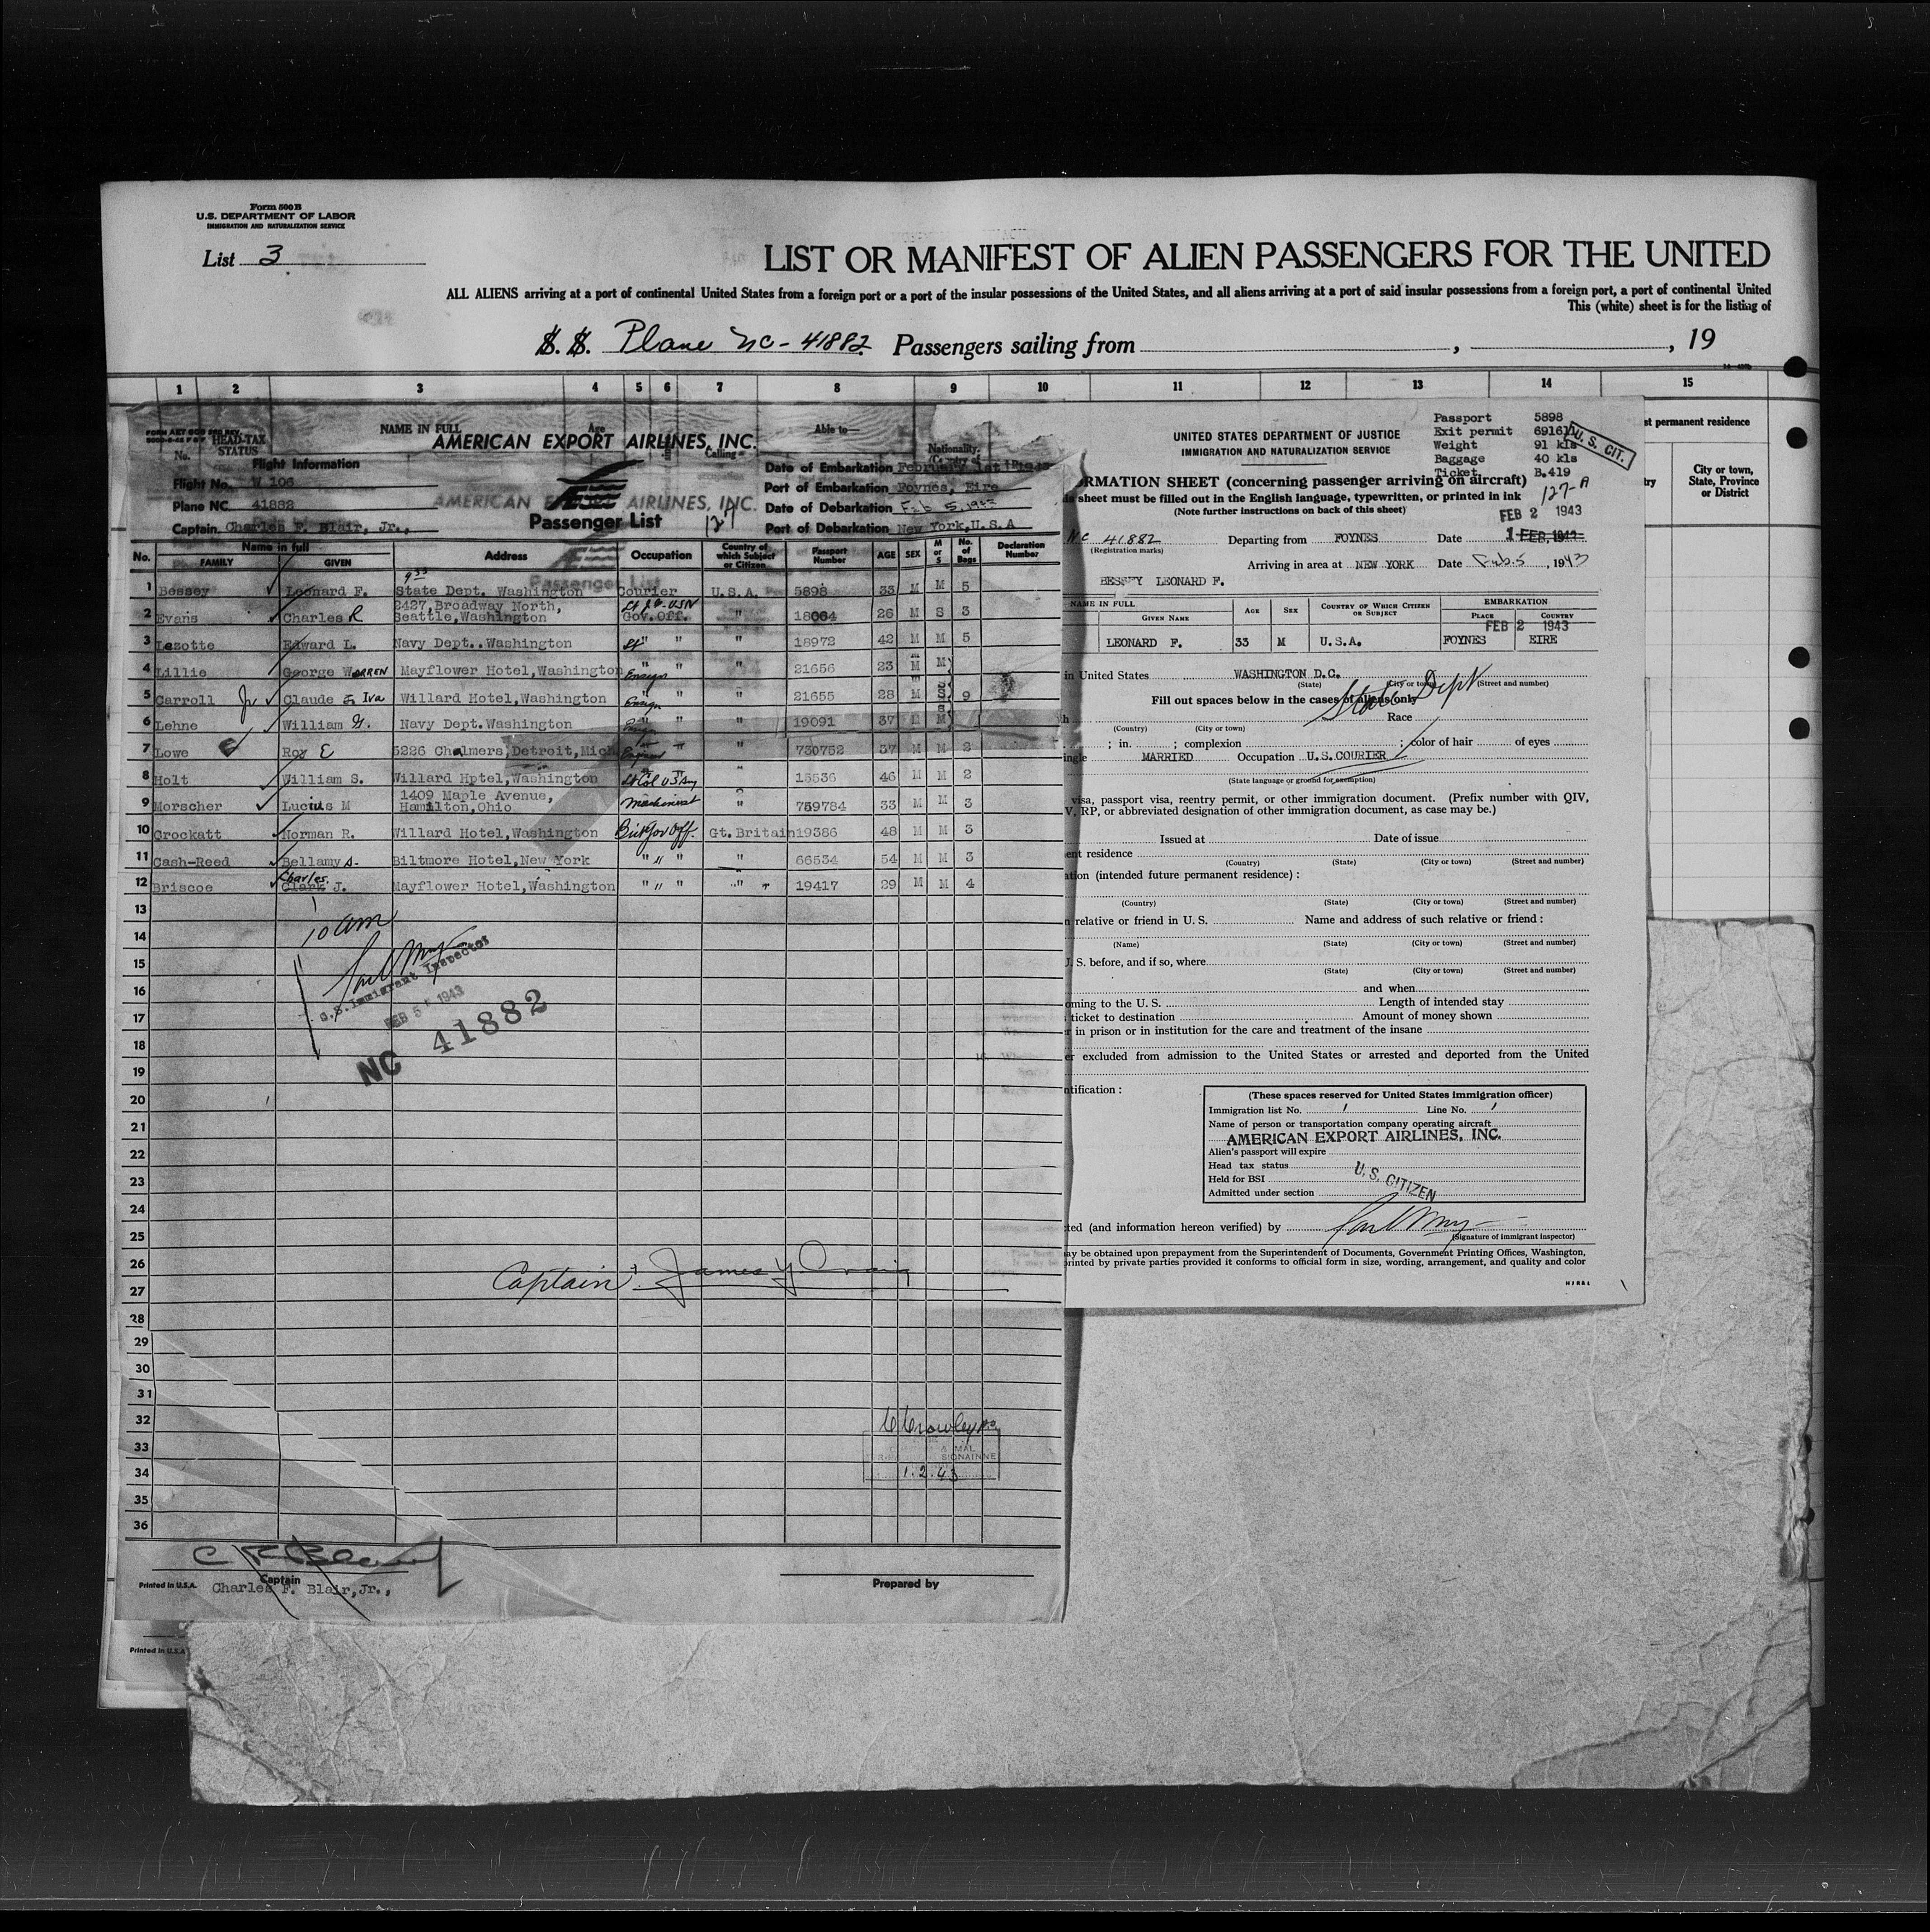 Form 500 B
U.S. DEPARTMENT OF LABOR
IMMIGRATION AND NATURALIZATION SERVICE
List 3
LIST OR MANIFEST OF ALIEN PASSENGERS FOR THE UNITED
ALL ALIENS arriving at a port of continental United States from a foreign port or a port of the insular possessions of the United States, and all aliens arriving at a port of said insular possessions from a foreign port, a port of continental United
This (white) sheet is for the listing of
S. S. Plane NC-41882 Passengers sailing from , , 19
1 2 3 4 5 6 7 8 9 10 11 12 13 14 15
HEAD-TAX STATUS
NAME IN FULL
Age
Calling
Able to—
Nationality.
No.
AMERICAN EXPORT AIRLINES, INC.
Flight Information
Flight No. W 106
Plane NC. 41882
Captain Charles F. Blair, Jr.,
AMERICAN AIRLINES, INC.
Passenger List
127
Date of Embarkation February 1st
Port of Embarkation Foynes, Eire
Date of Debarkation Feb 5, 1943
Port of Debarkation New York, U.S.A
No. Name in full FAMILY GIVEN Address Occupation Country of which Subject or Citizen Passport Number AGE SEX M or S No. of Bags Declaration Number
Passenger List
1 Bessey Leonard F. State Dept. Washington Courier U.S.A. 5898 33 M M 5
2 Evans Charles R 2427, Broadway North, Seattle, Washington Lt J.G. USN Gov. Off. " 18064 26 M S 3
3 Lezotte Edward L. Navy Dept.. Washington Lt " " " 18972 42 M M 5
4 Lillie George WARREN Mayflower Hotel, Washington Ensign " " " 21656 23 M M
5 Carroll Jr Claude Iva Willard Hotel, Washington Ensign " " " 21655 28 M S 9
6 Lehne William G. Navy Dept. Washington " " " 19091 37 M M
7 Lowe Roy E 5226 Chalmers, Detroit, Mich " 730752 37 M M 2
8 Holt William S. Willard Hptel, Washington Lt Col US Army " 15536 46 M M 2
9 Morscher Lucius M 1409 Maple Avenue, Hamilton, Ohio Machinist " 759784 33 M M 3
10 Crockatt Norman R. Willard Hotel, Washington Brit Gov Off. Gt. Britain 19386 48 M M 3
11 Cash-Reed Bellamy S. Biltmore Hotel, New York " " " " 66534 54 M M 3
12 Briscoe Charles Clark J. Mayflower Hotel, Washington " " " " 19417 29 M M 4
13
14
15
16
17
18
19
20
21
22
23
24
25
26
27
28
29
30
31
32
33
34
35
36
10 am
U.S. Immigrant Inspector
FEB 5 1943
NC 41882
Captain James Y. Craig
C Crowley
1.2.43
Captain
Charles F. Blair, Jr.,
Printed in U.S.A.
Prepared by
Printed in U.S.A
Passport 5898
Exit permit 69161
Weight 91 kls
Baggage 40 kls
Ticket B.419
U. S. CIT.
UNITED STATES DEPARTMENT OF JUSTICE
IMMIGRATION AND NATURALIZATION SERVICE
RMATION SHEET (concerning passenger arriving on aircraft)
127-A
sheet must be filled out in the English language, typewritten, or printed in ink
(Note further instructions on back of this sheet)
FEB 2 1943
NC 41882 Departing from FOYNES Date 1 FEB. 1943
(Registration marks)
Arriving in area at NEW YORK Date Feb. 5, 1943
BESSEY LEONARD F.
NAME IN FULL GIVEN NAME AGE SEX COUNTRY OF WHICH CITIZEN OR SUBJECT EMBARKATION PLACE COUNTRY
FEB 2 1943
LEONARD F. 33 M U.S.A. FOYNES EIRE
in United States WASHINGTON D.C.
(State) (City or town) (Street and number)
State Dept
Fill out spaces below in the cases of aliens only
Race
(Country) (City or town)
; in. ; complexion ; color of hair of eyes
ingle MARRIED Occupation U.S. COURIER
(State language or ground for exemption)
visa, passport visa, reentry permit, or other immigration document. (Prefix number with QIV,
V, RP, or abbreviated designation of other immigration document, as case may be.)
Issued at Date of issue
ent residence
(Country) (State) (City or town) (Street and number)
ation (intended future permanent residence) :
(Country) (State) (City or town) (Street and number)
n relative or friend in U. S. Name and address of such relative or friend :
(Name) (State) (City or town) (Street and number)
J. S. before, and if so, where
(State) (City or town) (Street and number)
and when
oming to the U. S. Length of intended stay
ticket to destination Amount of money shown
r in prison or in institution for the care and treatment of the insane
er excluded from admission to the United States or arrested and deported from the United
ntification :
(These spaces reserved for United States immigration officer)
Immigration list No. 1 Line No. 1
Name of person or transportation company operating aircraft
AMERICAN EXPORT AIRLINES, INC.
Alien's passport will expire
Head tax status
Held for BSI
U. S. CITIZEN
Admitted under section
ted (and information hereon verified) by
(Signature of immigrant inspector)
ay be obtained upon prepayment from the Superintendent of Documents, Government Printing Offices, Washington,
printed by private parties provided it conforms to official form in size, wording, arrangement, and quality and color
st permanent residence
City or town, State, Province or District